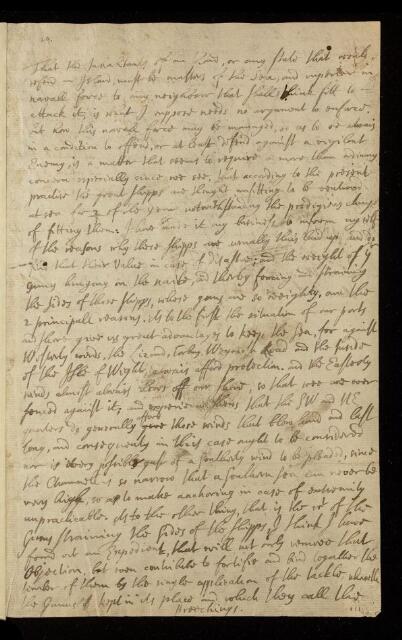 That the Inhabitants of an Land, or any State that would
defend an Island, must be masters of the Sea, and superior in
navall force to any neighbour that shall think fitt to
attack it, is what I suppose needs no argument to enforce.
But how this navall force may be managed, so as to be always
in a condition to offend, or at least defend against a vigilant
Enemy, is a matter that seems to require a more than ordinary
concern especially since we see, that according to the present
practise the great Shipps are thought unfitting to be ventured
at sea for of the year notwithstanding the prodigious charge
of fitting them: I have made it my business to inform my self
of the reasons why these shipps are usually thus laid up, and
find that their value in case of disaster, and the weight of ye
Guns hanging on the nailes, and thereby forcing and straining
the sides of those Shipps, whose guns are so weighty, are the
2 principall reasons. As to the first the situation of our ports
and shore give us great advantages to keep the Sea, for against
Westerly winds, the Lizard, Torbay, Weymouth Road and the
of the Isle of Wight, always afford protection. and the Easterly
winds almost always blows off our shore, so that wee are never
forced against it; and experience shews that the SW and NE
quarters do generally afford those winds that blow hard and last
long, and consequently in this case ought to be considered
nor is every possible gust of a southerly wind to be pleaded, since
the Channell is so narrow that a Southern Sea can never be
very high, so as to make anchoring in case of extremity
unpracticable. As to the other thing, that is the wt of the
Guns straining the sides of the shipps, I think I have
found out an Expedient, that will not only remove that
Objection, but even contribute to fortifie and bind together the
timber of them by the single application of the tackle whereby
the Gunns is kept in its place and which they call the
Breechings.